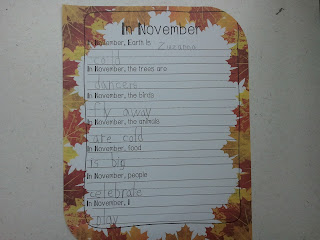 In November
In November, Earth is
cold
In November, the trees are
dancers
In November, the birds
fly away
In November, the animals
are cold
In November, food
is big
In November, people
celebrate
In November, I
play